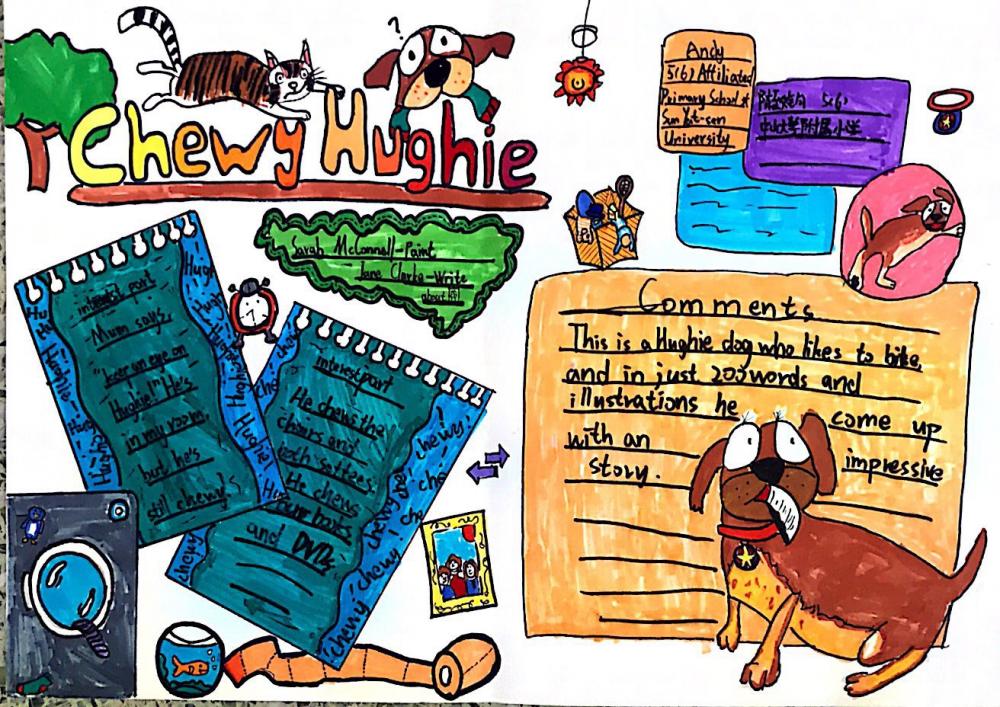 ?
Chewy Hughie
Andy
5(6) Affiliated
Primary School of
Sun Yat-sen
University
5(6)
中山大学附属小学
Sarah McConnell-Paint
Jane Clarke-Write
about 
interest part
Mum says,
"keep an eye on
Hughie!" He's
in my room,
but he's
still chewy
interest part
He chews the
chairs and
both settees
He chews
our boots
and DVDs
Comments
This is a Hughie dog who likes to bike,
and in just 200 words and
illustrations he come up
with an impressive
story.
Hughie
chewy!
chewy!
chewy!
chewy
chewy